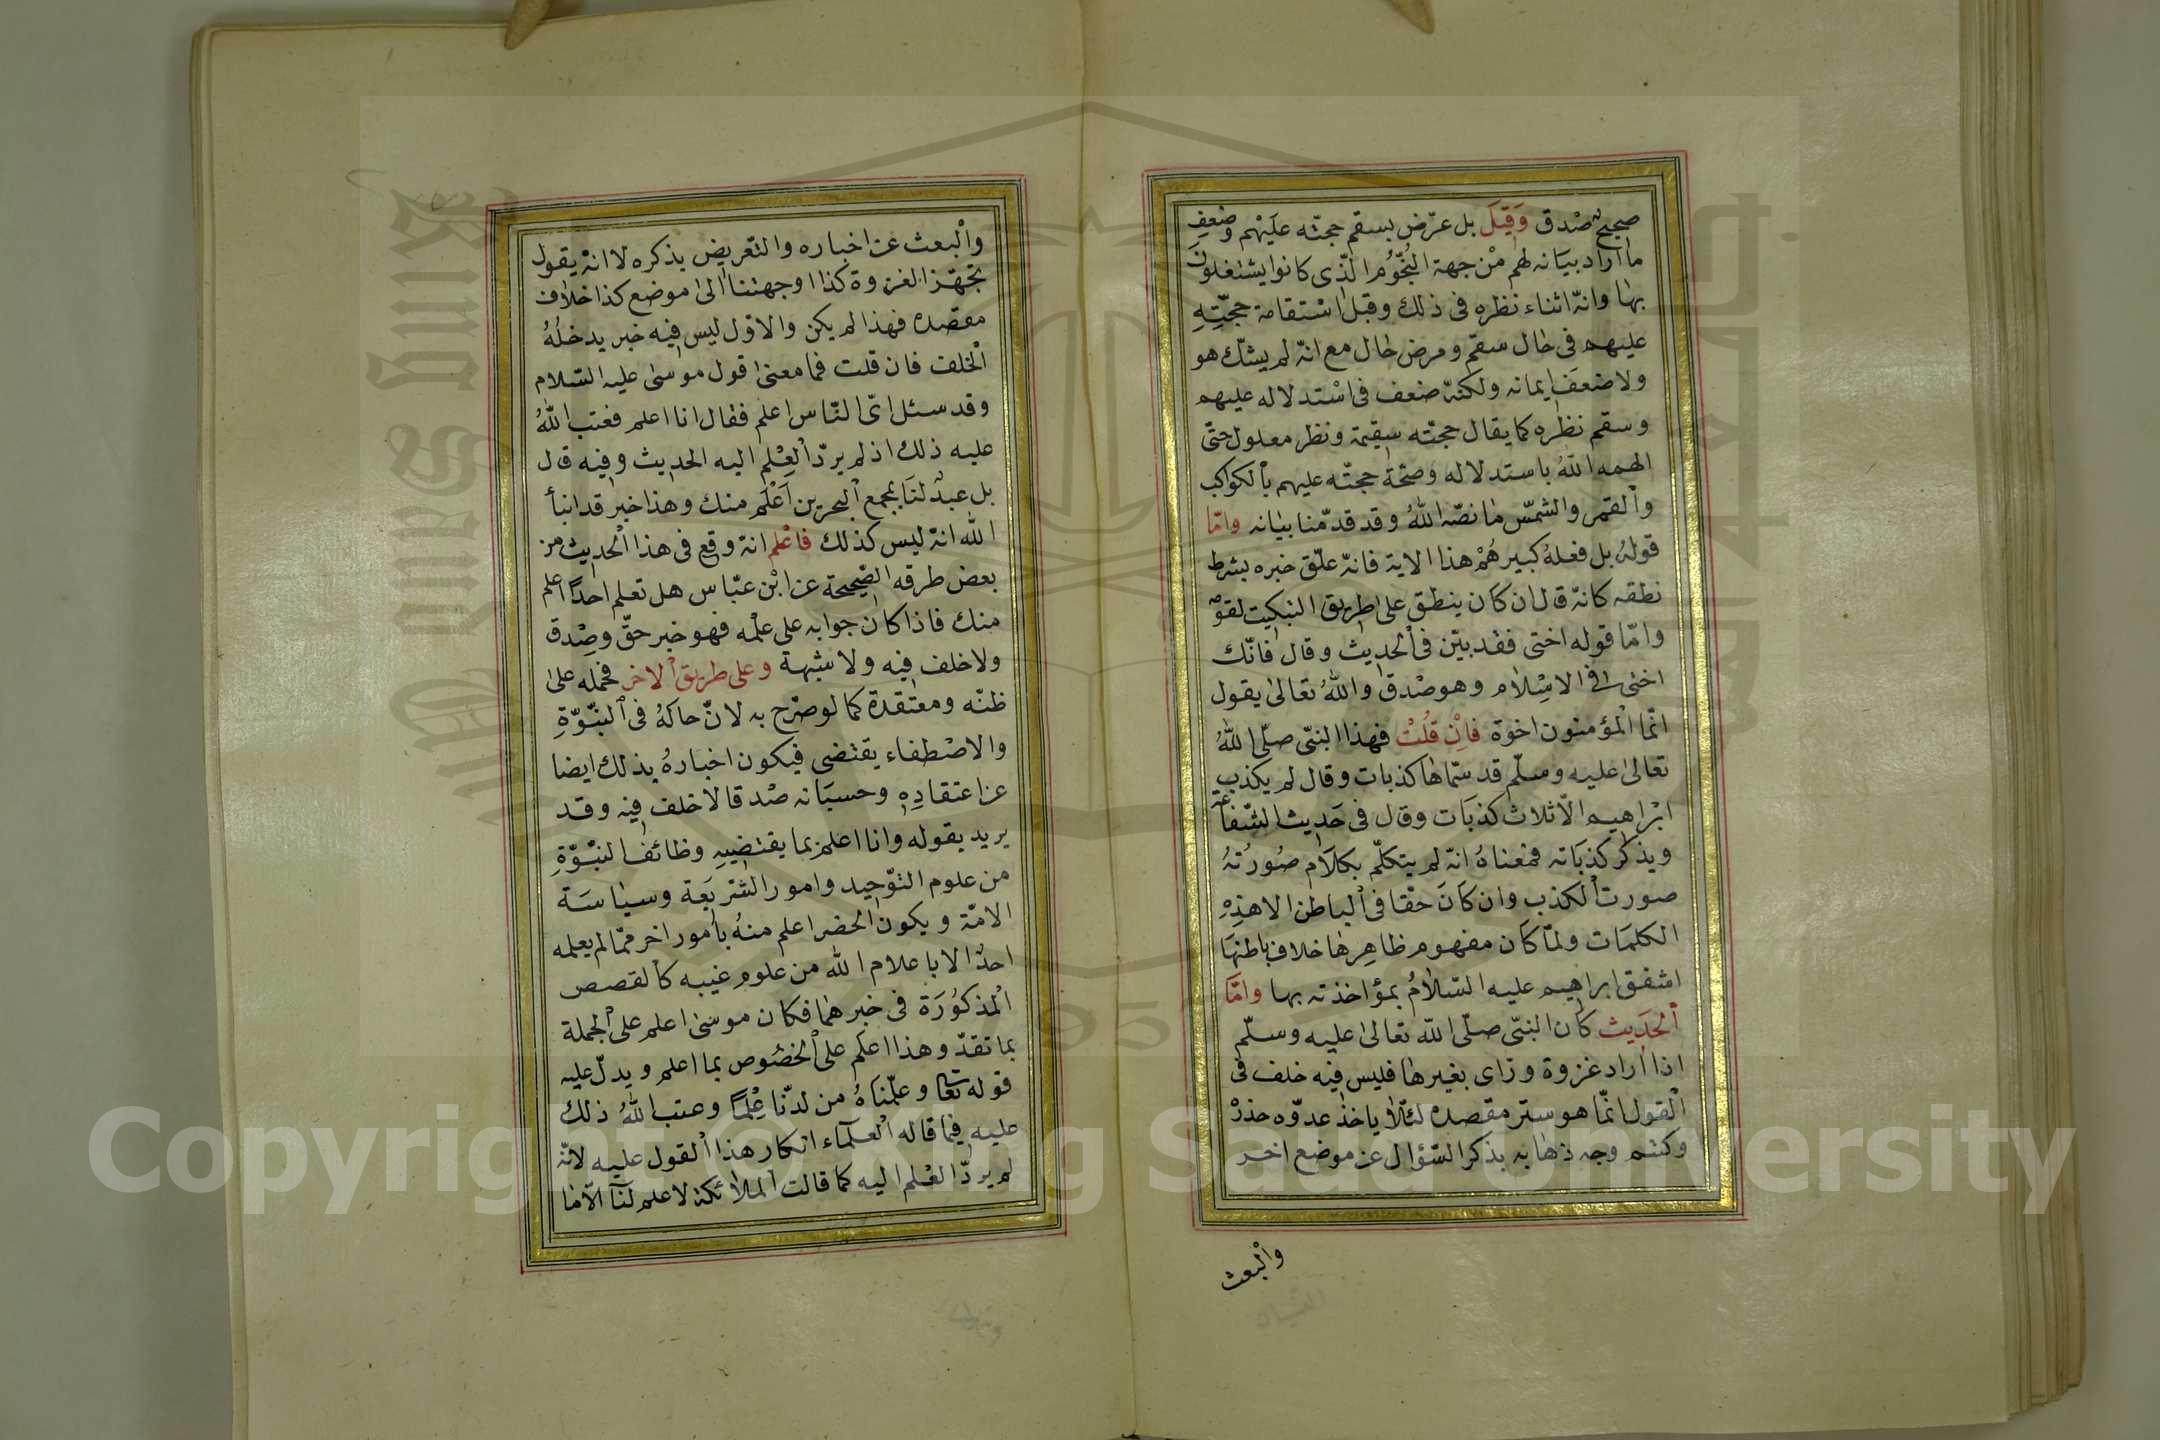 صحيح صدق وقيل بل عرّض بسقم حجته عليهم وضعف
ما اراد بيانه لهم من جهة النجوم الذى كانوا يشتغلون
بها وانه اثناء نظره فى ذلك وقبل استقامة حجته
عليهم فى حال سقم ومرض حال مع انه لم يشك هو
ولا ضعف ايمانه ولكنه ضعف فى استدلاله عليهم
وسقم نظره كما يقال حجته سقيمة ونظر معلول حتى
الهمه الله باستدلاله وصحة حجته عليهم بالكواكب
والقمر والشمس ما نصه الله وقد قدمنا بيانه واما
قوله بل فعله كبيرهم هذا الاية فانه علق خبره بشرط
نطقه كانه قال ان كان ينطق على طريق التبكيت لقومه
واما قوله اختى فقد بين فى الحديث وقال فانك
اختى فى الاسلام وهو صدق والله تعالى يقول
انما المؤمنون اخوة فان قلت فهذا النبى صلى الله
تعالى عليه وسلم قد سماها كذبات وقال لم يكذب
ابراهيم الا ثلاث كذبات وقال فى حديث الشفاعة
ويذكر كذباته فمعناه انه لم يتكلم بكلام صورته
صورت الكذب وان كان حقا فى الباطن الا هذه
الكلمات ولما كان مفهوم ظاهرها خلاف باطنها
اشفق ابراهيم عليه السلام بمؤاخذته بها واما
الحديث كان النبى صلى الله تعالى عليه وسلم
اذا اراد غزوة ورى بغيرها فليس فيه خلف فى
القول انما هو ستر مقصده لئلا ياخذ عدوه حذر
وكتم وجه ذهابه بذكر السؤال عن موضع اخر
والبعث
والبعث عن اخباره والتعريض بذكره لا انه يقول
تجهز الغزوة كذا او جهتنا الى موضع كذا خلاف
مقصده فهذا لم يكن والاول ليس فيه خبر يدخله
الخلف فان قلت فما معنى قول موسى عليه السلام
وقد سئل اى الناس اعلم فقال انا اعلم فعتب الله
عليه ذلك اذ لم يرد العلم اليه الحديث وفيه قال
بل عبد لنا بمجمع البحرين اعلم منك وهذا خبر قد انبأ
الله انه ليس كذلك فاعلم انه وقع فى هذا الحديث من
بعض طرقه الصحيحة عن ابن عباس هل تعلم احدا اعلم
منك فاذا كان جوابه على علمه فهو خبر حق وصدق
ولا خلف فيه ولا شبهة وعلى طريق الاخر فحمله على
ظنه ومعتقدة كما لو صرح به لان حاله فى النبوة
والاصطفاء يقتضى فيكون اخباره بذلك ايضا
عن اعتقاده وحسبانه صدقا لا خلف فيه وقد
يريد بقوله وانا اعلم بما يقتضيه وظائف النبوة
من علوم التوحيد وامور الشريعة وسياسة
الامة ويكون الخضر اعلم منه بامور اخر مما لم يعلمه
احد الا باعلام الله من علوم غيبه كالقصص
المذكورة فى خبرهما فكان موسى اعلم على الجملة
بما تقدّ وهذا اعلم على الخصوص بما اعلم ويدل عليه
قوله تعا وعلمناه من لدنا علما وعتب الله ذلك
عليه فيما قاله العلماء انكار هذا القول عليه لانه
لم يرد العلم اليه كما قالت الملائكة لا علم لنا الا ما
Copyright © King Saud University